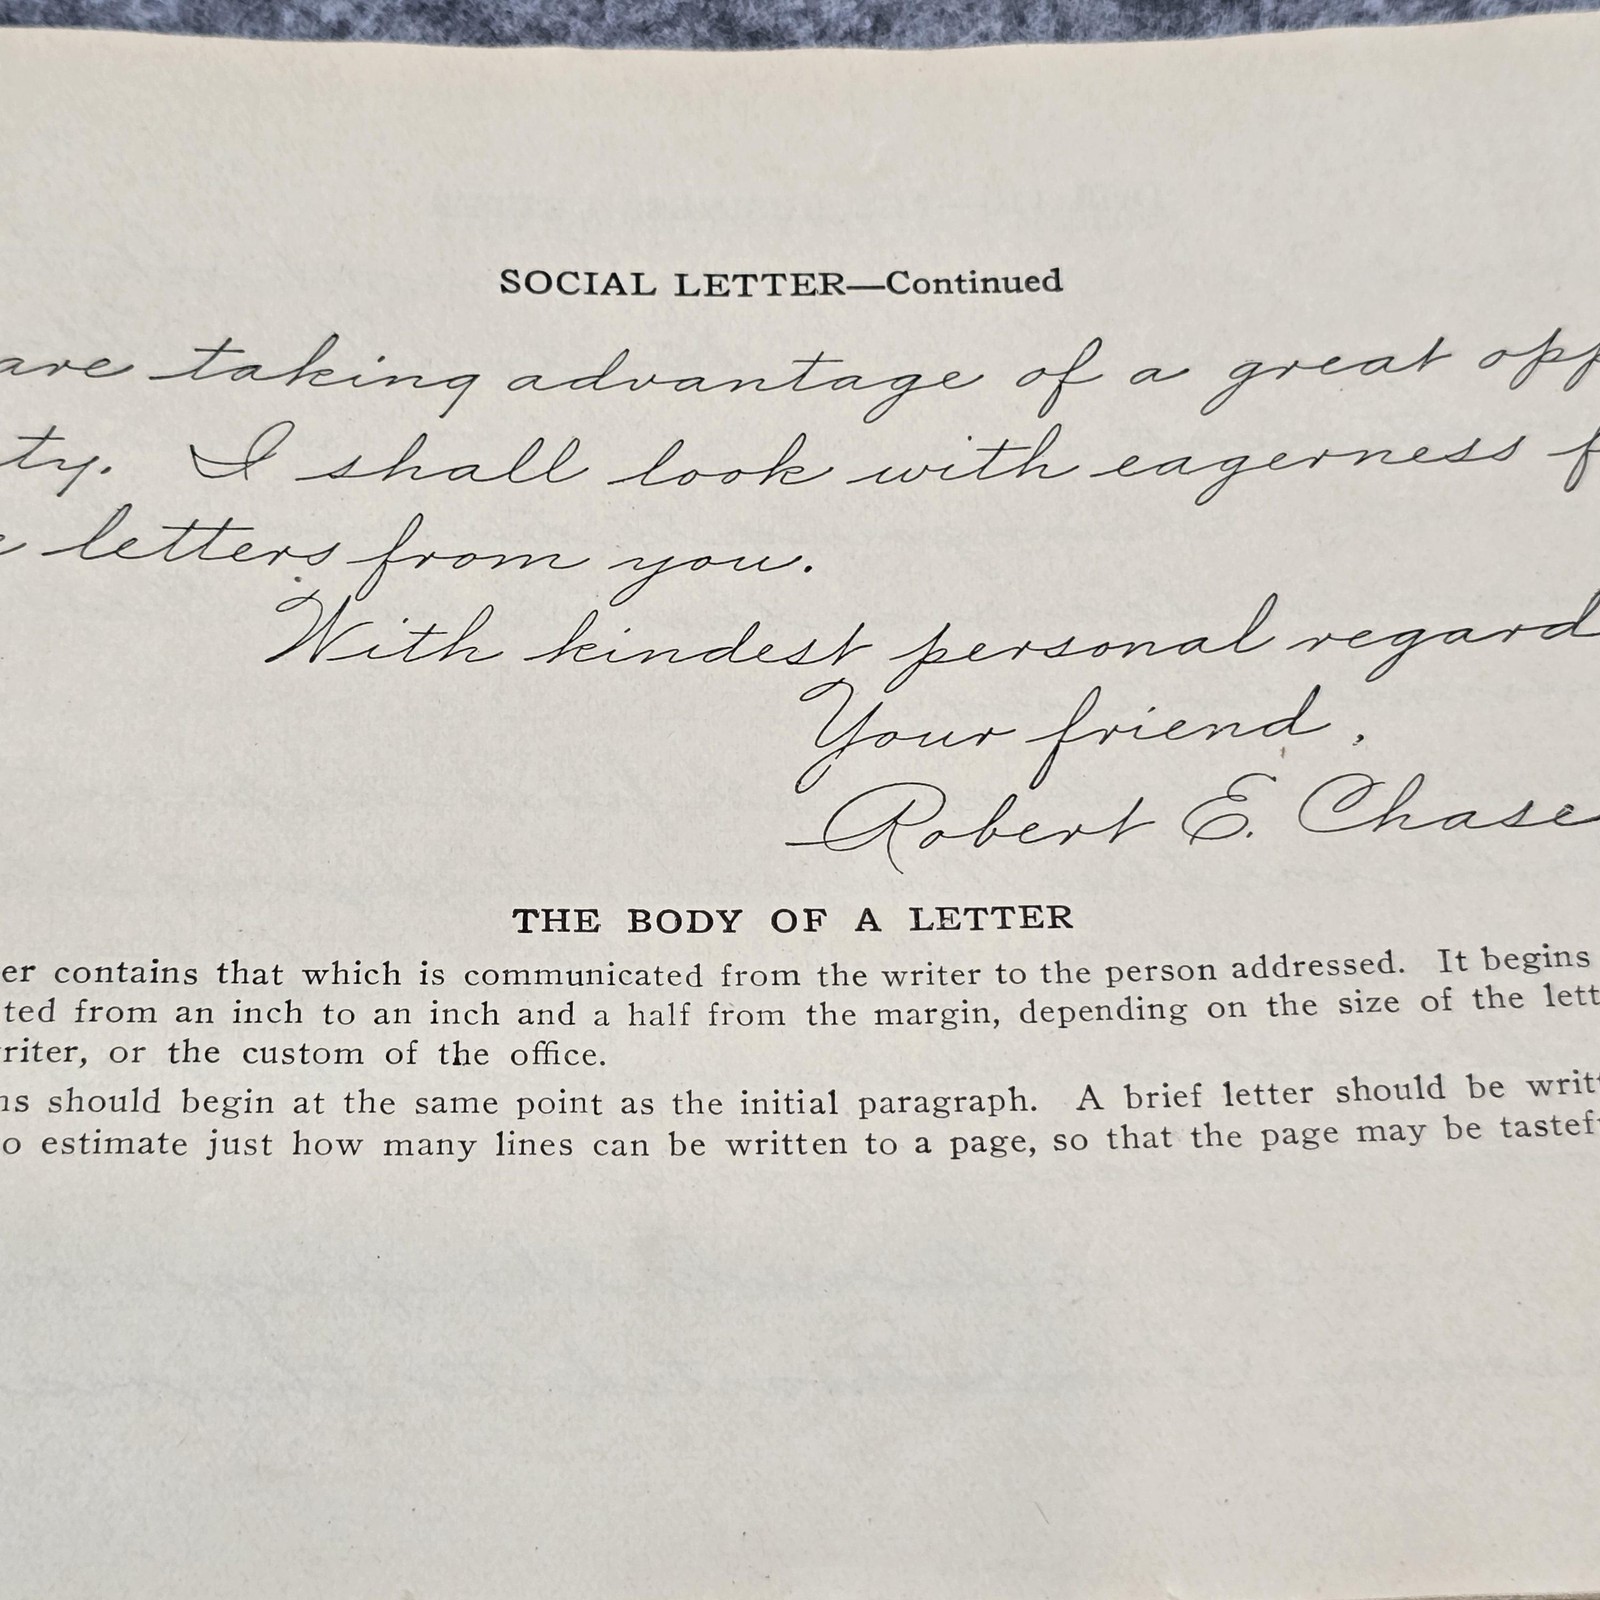 SOCIAL LETTER—Continued
are taking advantage of a great opp
ty. I shall look with eagerness f
letters from you.
With kindest personal regard
Your friend,
Robert E. Chase
THE BODY OF A LETTER
er contains that which is communicated from the writer to the person addressed. It begins
ted from an inch to an inch and a half from the margin, depending on the size of the lett
riter, or the custom of the office.
ns should begin at the same point as the initial paragraph. A brief letter should be writt
o estimate just how many lines can be written to a page, so that the page may be tastef